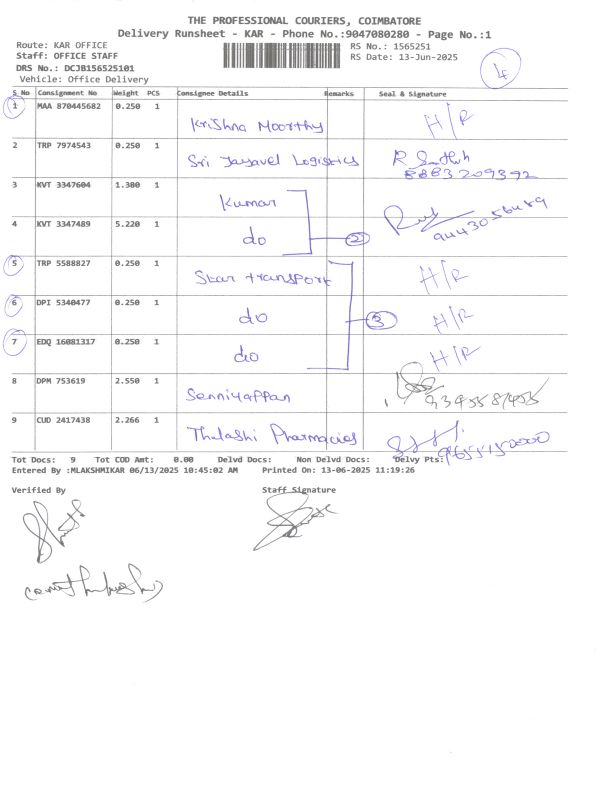 THE PROFESSIONAL COURIERS, COIMBATORE
Delivery Runsheet - KAR - Phone No.:9047080280 - Page No.:1
Route: KAR OFFICE RS No.: 1565251
Staff: OFFICE STAFF RS Date: 13-Jun-2025
DRS No.: DCJB156525101
Vehicle: Office Delivery
4
S_No Consignment No Weight PCS Consignee Details Remarks Seal & Signature
1 MAA 870445682 0.250 1 Krishna Moorthy H/R
2 TRP 7974543 0.250 1 Sri Jayavel Logistics
8883209392
3 KVT 3347604 1.380 1 Kumar
9443056489
4 KVT 3347489 5.220 1 do 2
5 TRP 5588827 0.250 1 Star transport H/R
6 DPI 5340477 0.250 1 do 3 H/R
7 EDQ 16081317 0.250 1 do H/R
8 DPM 753619 2.550 1 Senniyappan
9 CUD 2417438 2.266 1 Thulashi Pharmacies
Tot Docs: 9 Tot COD Amt: 0.00 Delvd Docs: Non Delvd Docs: Delvy Pts:
Entered By :MLAKSHMIKAR 06/13/2025 10:45:02 AM Printed On: 13-06-2025 11:19:26
Verified By Staff Signature